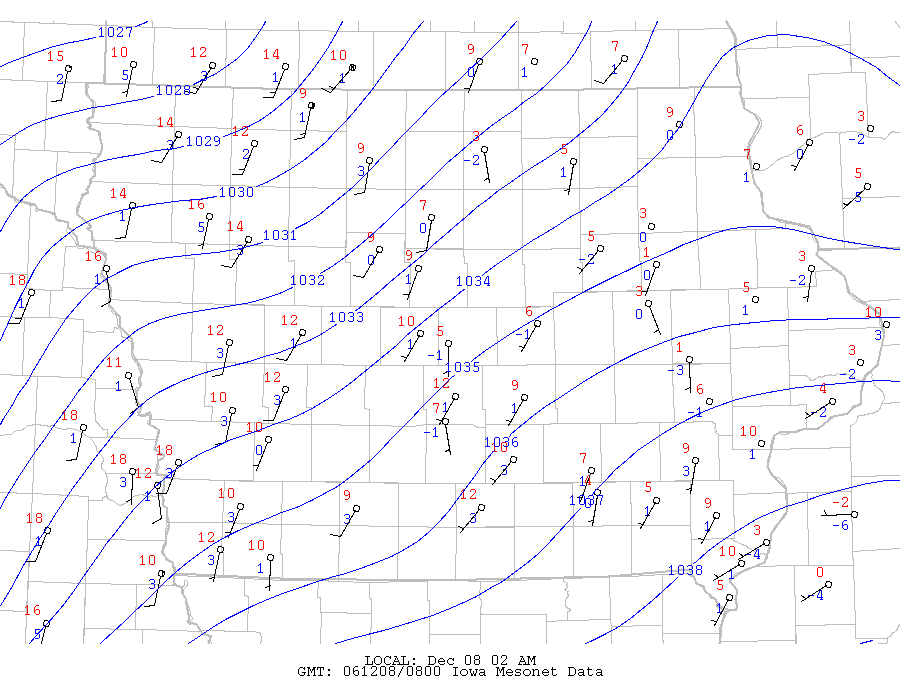 1027
15 10 12 14 10 9 7 7
2 5 3 1 1 0 1 1
1028
9
1
14 12 9 3 5 9 7 6 3
3 2 3 -2 1 0 1 0 -2
1029
1030
14 16 14 9 7 9 5 3 1 3 5
1 5 3 0 0 1 -2 0 0 -2 5
1031
16
1
1032
1034
18
1
1033
12 12 10 5 6 3 5 10
3 1 1 -1 -1 0 1 3
1035
11 12 12 9 1 3
1 3 1 1 -3 -2
10 7 6 4
3 -1 -1 -2
18 10 10
1 0 1
1036
18 18 12 10 7 9
3 3 1 3 1 3
1037
10 9 12 4 5 9 -2
3 3 3 0 1 1 -6
18 12 10 10 3
1 3 1 1 -4
1038
10 5 0
3 1 -4
16
5
LOCAL: Dec 08 02 AM
GMT: 061208/0800 Iowa Mesonet Data